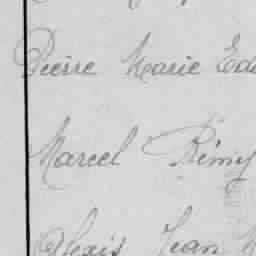 Pierre Marie Ede
Marcel Rémy
Alexis Jean